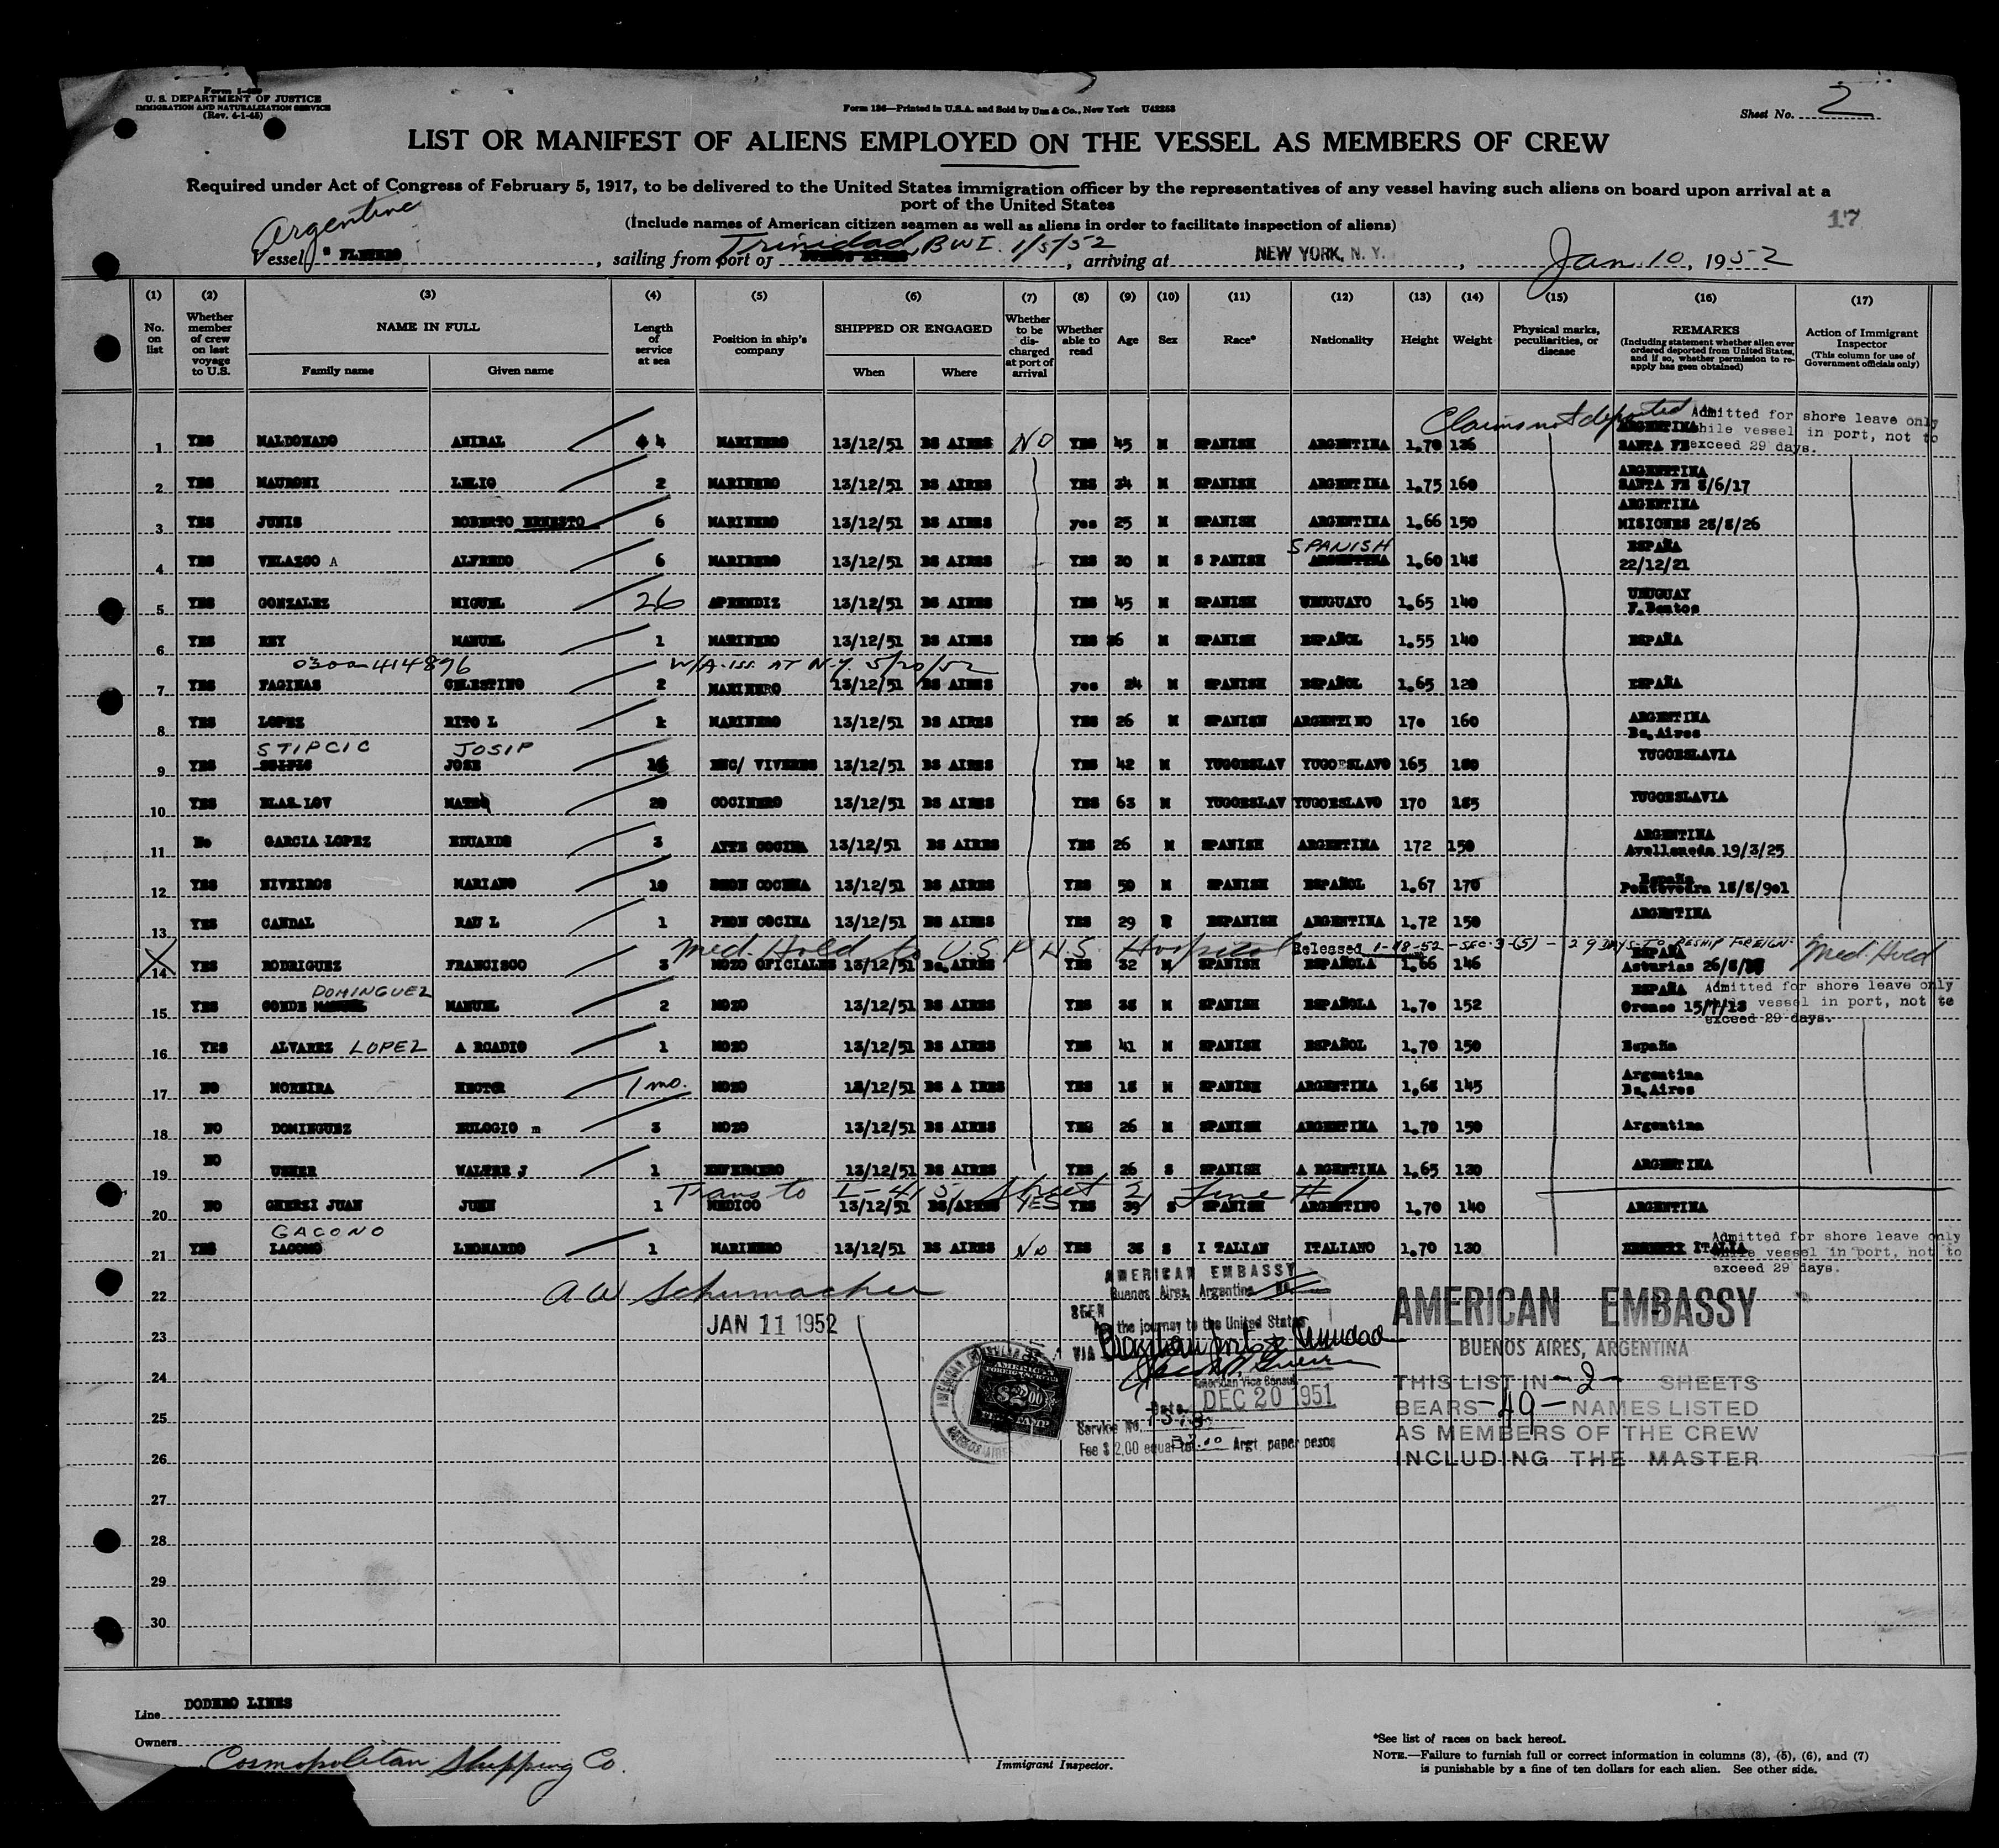 Form I-489
U. S. DEPARTMENT OF JUSTICE
IMMIGRATION AND NATURALIZATION SERVICE
(Rev. 4-1-45)
Form 136—Printed in U.S.A. and Sold by Unz & Co., New York U42253
Sheet No. 2
LIST OR MANIFEST OF ALIENS EMPLOYED ON THE VESSEL AS MEMBERS OF CREW
Required under Act of Congress of February 5, 1917, to be delivered to the United States immigration officer by the representatives of any vessel having such aliens on board upon arrival at a
port of the United States
(Include names of American citizen seamen as well as aliens in order to facilitate inspection of aliens)
17
Argentine Trinidad, BWI. 1/5/52
Vessel , sailing from port of , arriving at NEW YORK, N. Y. , Jan. 10, 1952
(1) (2) (3) (4) (5) (6) (7) (8) (9) (10) (11) (12) (13) (14) (15) (16) (17)
No. on list
Whether member of crew on last voyage to U.S.
NAME IN FULL
Family name Given name
Length of service at sea
Position in ship's company
SHIPPED OR ENGAGED
When Where
Whether to be discharged at port of arrival
Whether able to read
Age
Sex
Race*
Nationality
Height
Weight
Physical marks, peculiarities, or disease
REMARKS
(Including statement whether alien ever ordered deported from United States, and if so, whether permission to reapply has been obtained)
Action of Immigrant Inspector
(This column for use of Government officials only)
Claims not deported Admitted for shore leave only while vessel in port, not to exceed 29 days.
1 YES MALDONADO ANIBAL 4 MARINERO 13/12/51 BS AIRES NO YES 45 M SPANISH ARGENTINA 1.70 136 ARGENTINA SANTA FE
2 YES MAURONI LELIO 2 MARINERO 13/12/51 BS AIRES YES 34 M SPANISH ARGENTINA 1.75 160 ARGENTINA SANTA FE 8/6/17
3 YES JUNIS ROBERTO ERNESTO 6 MARINERO 13/12/51 BS AIRES yes 25 M SPANISH ARGENTINA 1.66 150 ARGENTINA MISIONES 28/8/26
SPANISH
4 YES VELAZCO A ALFREDO 6 MARINERO 13/12/51 BS AIRES YES 30 M S PANISH ARGENTINA 1.60 148 ESPAÑA 22/12/21
5 YES GONZALEZ MIGUEL 26 APRENDIZ 13/12/51 BS AIRES YES 45 M SPANISH URUGUAYO 1.65 140 URUGUAY F.Bentos
6 YES REY MANUEL 1 MARINERO 13/12/51 BS AIRES YES 36 M SPANISH ESPAÑOL 1.55 140 ESPAÑA
0300-414896 W/A iss. AT N.Y. 5/20/52
7 YES FAGINAS CELESTINO 2 MARINERO 13/12/51 BS AIRES yes 24 M SPANISH ESPAÑOL 1.65 120 ESPAÑA
8 YES LOPEZ RITO L 1 MARINERO 13/12/51 BS AIRES YES 26 M SPANISH ARGENTI NO 170 160 ARGENTINA Bs.Aires
STIPCIC JOSIP
9 YES JOSE ENC/ VIVERES 13/12/51 BS AIRES YES 42 M YUGOESLAV YUGOESLAVO 165 180 YUGOESLAVIA
10 YES BLAS LOV MATEO 20 COCINERO 13/12/51 BS AIRES YES 63 M YUGOESLAV YUGOESLAVO 170 185 YUGOESLAVIA
11 No GARCIA LOPEZ EDUARDO 3 AYTE COCINA 13/12/51 BS AIRES YES 26 M SPANISH ARGENTINA 172 150 ARGENTINA Avellaneda 19/3/25
12 YES NIVEIROS MARIANO 10 PEON COCINA 13/12/51 BS AIRES YES 50 M SPANISH ESPAÑOL 1.67 170 España Pontevedra 18/8/901
13 YES CANDAL RAU L 1 PEON COCINA 13/12/51 BS AIRES YES 29 ESPANISH ARGENTINA 1.72 150 ARGENTINA
Med. Hold to U.S.P.H.S. Hospital Released 1-18-52 - SEC 3-(5) - 29 DAYS TO RESHIP FOREIGN. Med. Hold
X 14 YES RODRIGUEZ FRANCISCO 3 MOZO OFICIALES 13/12/51 Bs.AIRES YES 32 M SPANISH ESPAÑOLA 1.66 146 ESPAÑA Asturias 26/8/
DOMINGUEZ
15 YES CONDE MANUEL MANUEL 2 MOZO 13/12/51 BS AIRES YES 38 M SPANISH ESPAÑOLA 1.70 152 ESPAÑA Orense 15/7/13
Admitted for shore leave only while vessel in port, not to exceed 29 days.
16 YES ALVAREZ LOPEZ A RCADIO 1 MOZO 13/12/51 BS AIRES YES 41 M SPANISH ESPAÑOL 1.70 150 España
17 NO MOREIRA HECTOR 1 mo. MOZO 13/12/51 BS A IRES YES 18 M SPANISH ARGENTINA 1.68 145 Argentina Bs.Aires
18 NO DOMINGUEZ EULOGIO m 3 MOZO 13/12/51 BS AIRES YES 26 M SPANISH ARGENTINA 1.70 150 Argentina
19 NO USHER WALTER J 1 ENFERMERO 13/12/51 BS AIRES YES 26 S SPANISH A RGENTINA 1.65 130 ARGENTINA
Trans to I-415, Sheet 2, Line #1
20 NO GHERZI JUAN JUAN 1 MEDICO 13/12/51 BS/AIRES YES YES 39 S SPANISH ARGENTINO 1.70 140 ARGENTINA
GACONO
21 YES LACONO LEONARDO 1 MARINERO 13/12/51 BS AIRES No YES 38 S I TALIAN ITALIANO 1.70 130 ITALIA
Admitted for shore leave only while vessel in port, not to exceed 29 days.
22
23
24
25
26
27
28
29
30
A W Schumacher
JAN 11 1952
AMERICAN EMBASSY
Buenos Aires, Argentina
SEEN
the journey to the United States
VIA Brazilian ports & Trinidad
American Vice Consul
Date DEC 20 1951
Service No.
Fee $ 2.00 equal to Argt. paper pesos
$2.00
AMERICAN EMBASSY
BUENOS AIRES, ARGENTINA
THIS LIST IN -2- SHEETS
BEARS -49- NAMES LISTED
AS MEMBERS OF THE CREW
INCLUDING THE MASTER
Line DODERO LINES
Owners Cosmopolitan Shipping Co.
Immigrant Inspector.
*See list of races on back hereof.
NOTE.—Failure to furnish full or correct information in columns (3), (5), (6), and (7)
is punishable by a fine of ten dollars for each alien. See other side.